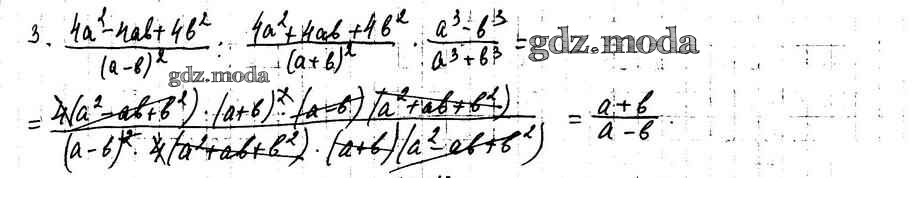 3. (4a² - 4ab + 4b²)/(a - b)² : (4a² + 4ab + 4b²)/(a + b)² · (a³ - b³)/(a³ + b³) = gdz.moda
gdz.moda
= (4(a² - ab + b²) · (a + b)² · (a - b)(a² + ab + b²))/((a - b)² · 4(a² + ab + b²) · (a + b)(a² - ab + b²)) = (a + b)/(a - b)